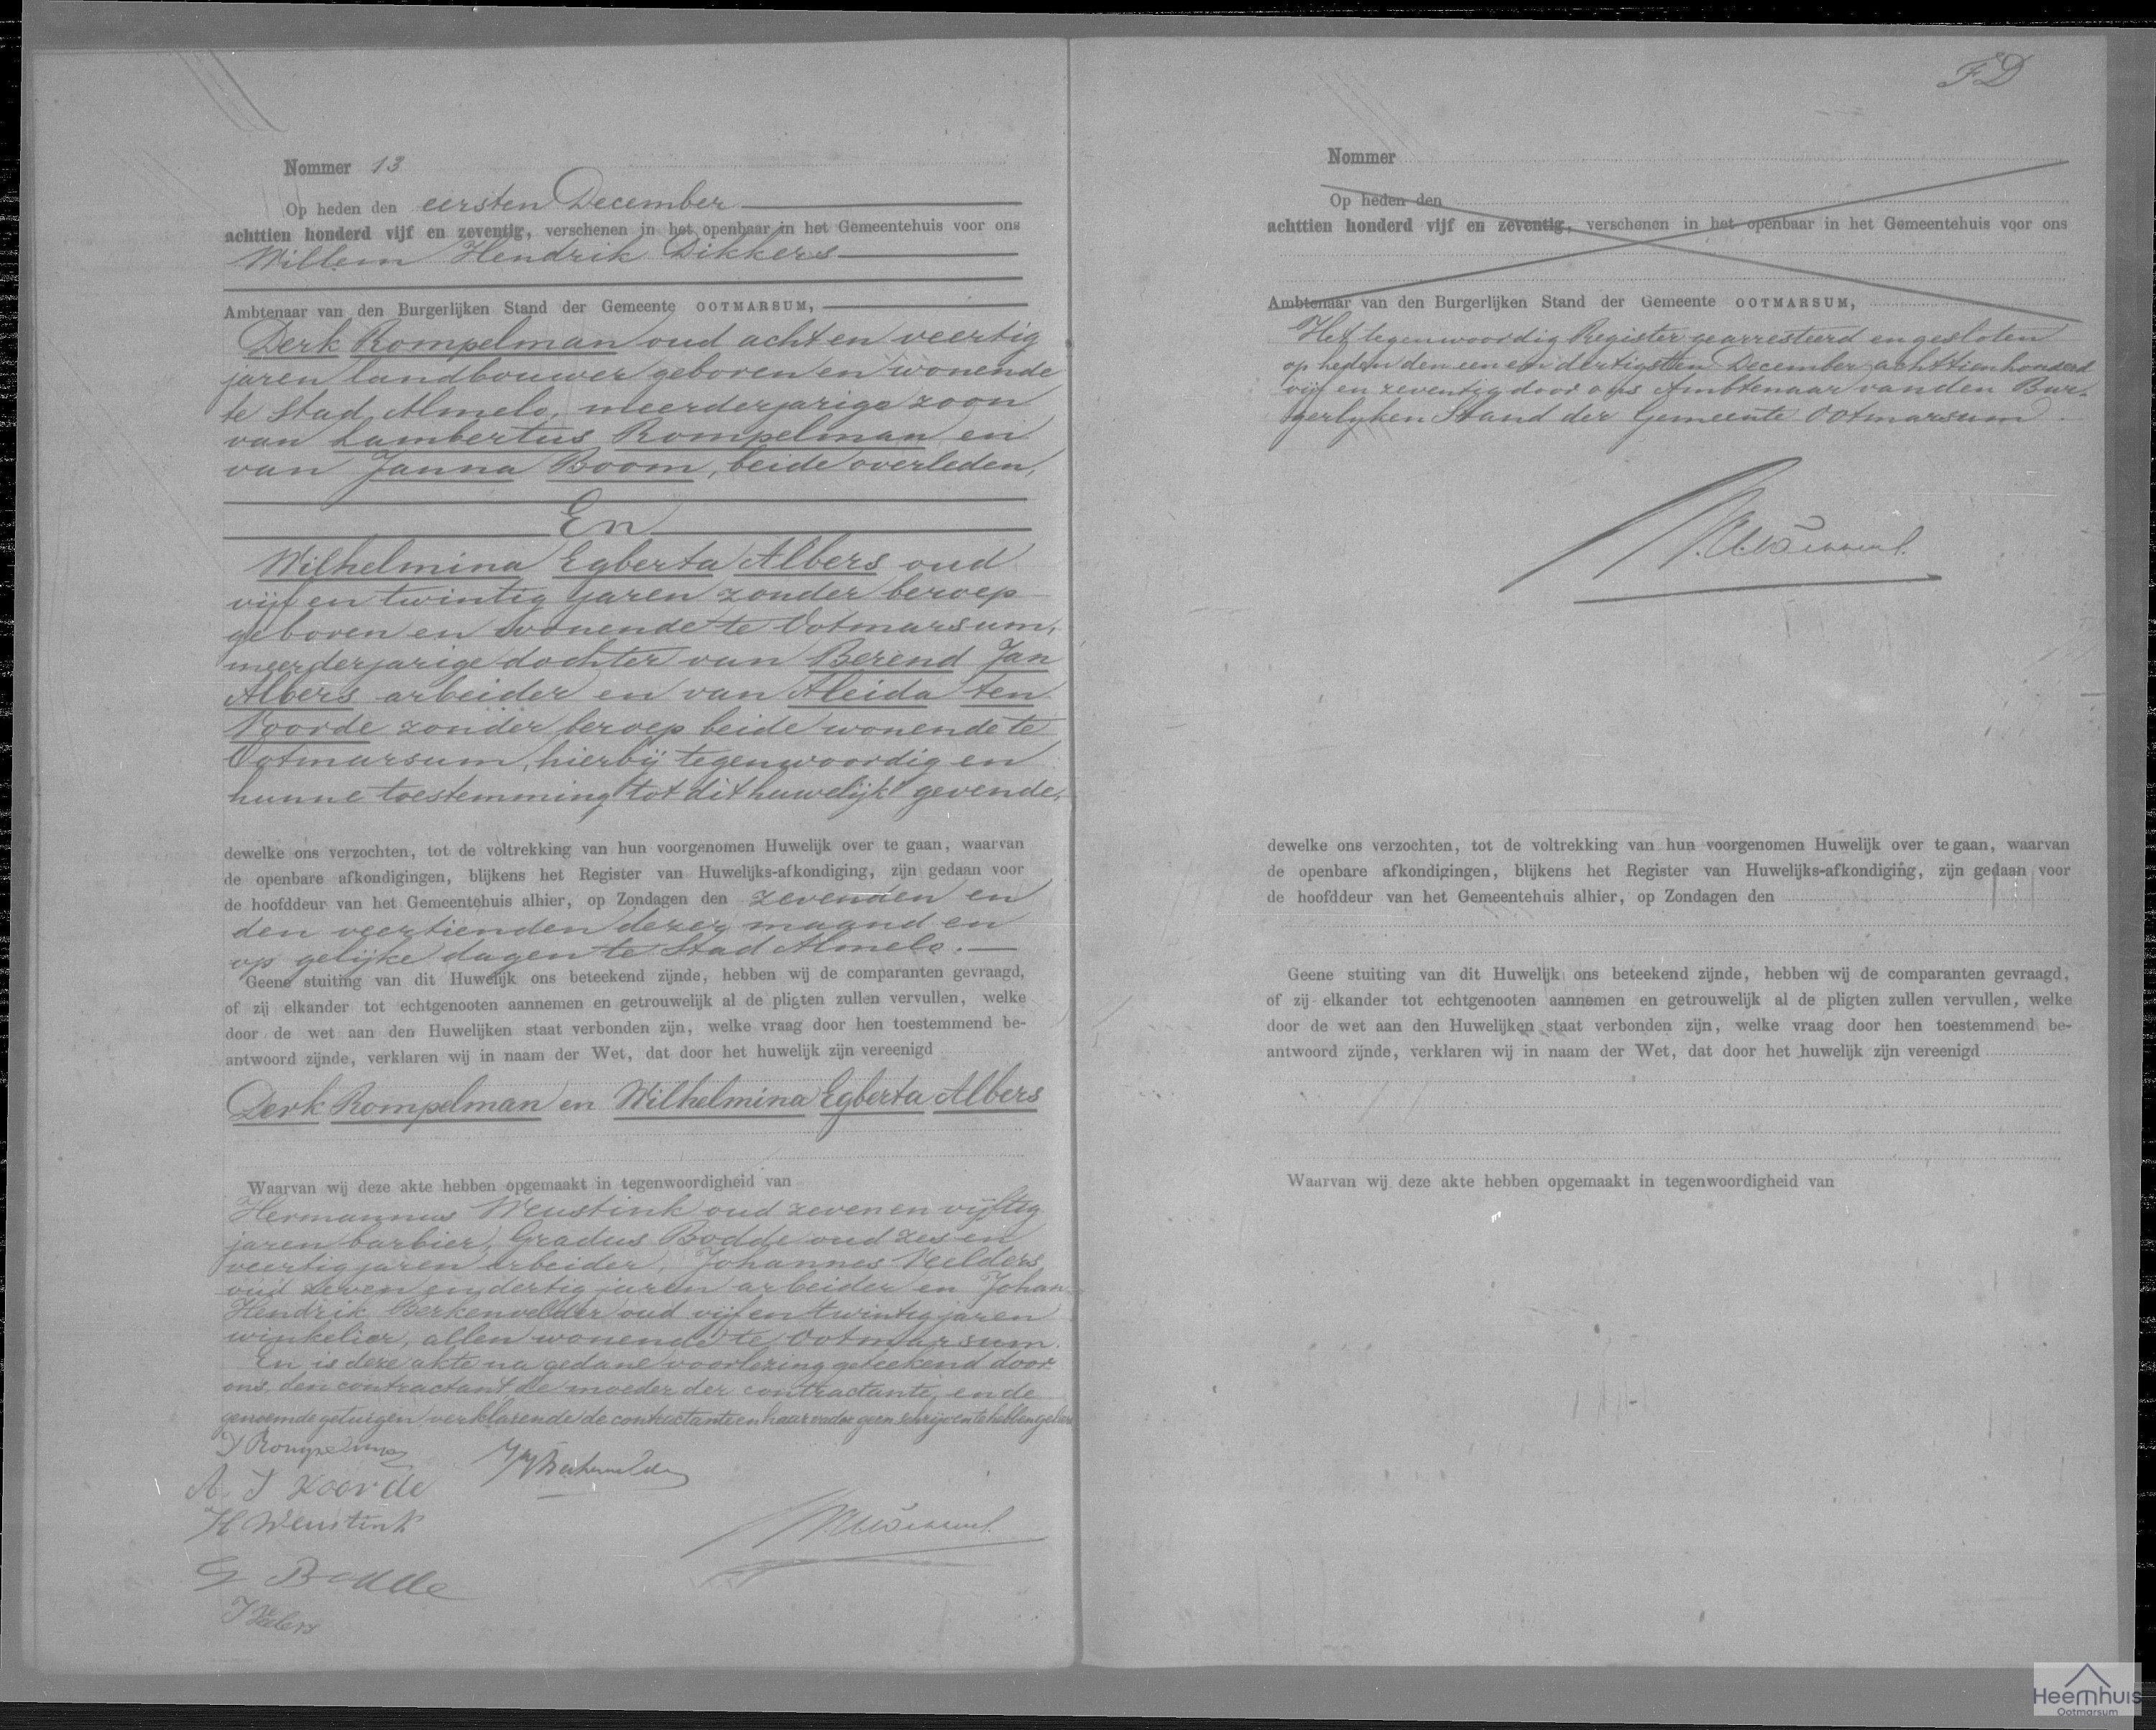 Nommer 13
Op heden den eersten December
achttien honderd vijf en zeventig, verschenen in het openbaar in het Gemeentehuis voor ons
Willem Hendrik Dikkers
Ambtenaar van den Burgerlijken Stand der Gemeente OOTMARSUM,
Derk Rompelman oud acht en veertig
jaren landbouwer geboren en wonende
te Stad Almelo, meerderjarige zoon
van Lambertus Rompelman en
van Janna Boom, beide overleden,
En
Wilhelmina Egberta Albers oud
vijf en twintig jaren zonder beroep
geboren en wonende te Ootmarsum,
meerderjarige dochter van Berend Jan
Albers arbeider en van Aleida ten
Voorde zonder beroep beide wonende te
Ootmarsum, hierbij tegenwoordig en
hunne toestemming tot dit huwelijk gevende,
dewelke ons verzochten, tot de voltrekking van hun voorgenomen Huwelijk over te gaan, waarvan
de openbare afkondigingen, blijkens het Register van Huwelijks-afkondiging, zijn gedaan voor
de hoofddeur van het Gemeentehuis alhier, op Zondagen den zevenden en
den veertienden dezer maand en
op gelijke dagen te Stad Almelo.
Geene stuiting van dit Huwelijk ons beteekend zijnde, hebben wij de comparanten gevraagd,
of zij elkander tot echtgenooten aannemen en getrouwelijk al de pligten zullen vervullen, welke
door de wet aan den Huwelijken staat verbonden zijn, welke vraag door hen toestemmend be-
antwoord zijnde, verklaren wij in naam der Wet, dat door het huwelijk zijn vereenigd
Derk Rompelman en Wilhelmina Egberta Albers
Waarvan wij deze akte hebben opgemaakt in tegenwoordigheid van
Hermannus Weustink oud zeven en vijftig
jaren barbier, Gradus Bodde oud zes en
veertig jaren arbeider, Johannes Velders
oud zeven en dertig jaren arbeider en Johan
Hendrik Berkenvelder oud vijf en twintig jaren
winkelier, allen wonende te Ootmarsum.
En is deze akte na gedane voorlezing geteekend door
ons, den contractant, de moeder der contractante, en de
genoemde getuigen, verklarende de contractante en haar vader geen schrijven te hebben geleerd
D Rompelman
A. T Voorde
H Weustink
G Bodde
J Velders
FD
Nommer
Op heden den
achttien honderd vijf en zeventig, verschenen in het openbaar in het Gemeentehuis voor ons
Ambtenaar van den Burgerlijken Stand der Gemeente OOTMARSUM,
Het tegenwoordig Register gearresteerd en gesloten
op heden den een en dertigsten December achttienhonderd
vijf en zeventig door ons Ambtenaar van den Bur-
gerlyken Stand der Gemeente Ootmarsum
dewelke ons verzochten, tot de voltrekking van hun voorgenomen Huwelijk over te gaan, waarvan
de openbare afkondigingen, blijkens het Register van Huwelijks-afkondiging, zijn gedaan voor
de hoofddeur van het Gemeentehuis alhier, op Zondagen den
Geene stuiting van dit Huwelijk ons beteekend zijnde, hebben wij de comparanten gevraagd,
of zij elkander tot echtgenooten aannemen en getrouwelijk al de pligten zullen vervullen, welke
door de wet aan den Huwelijken staat verbonden zijn, welke vraag door hen toestemmend be-
antwoord zijnde, verklaren wij in naam der Wet, dat door het huwelijk zijn vereenigd
Waarvan wij deze akte hebben opgemaakt in tegenwoordigheid van
Heemhuis
Ootmarsum